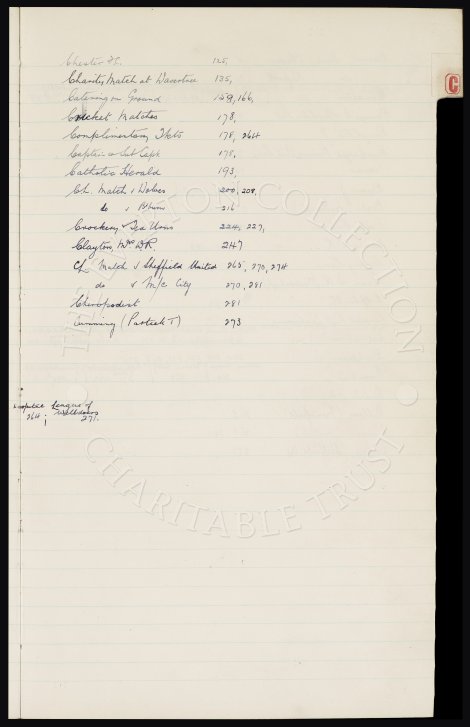 Chester FC. 125,
Charity Match at Wavertree 135,
Catering on Ground 159, 166,
Cricket Matches 178,
Complimentary Tkts 178, 264
Captain & Sub Capt 178,
Catholic Herald 193,
Ch. Match v Wolves 200, 208,
do v B'ham 216
Crockery & Tea Urns 224, 227,
Clayton, Mr DR. 247
Ch. Match v Sheffield United 265, 270, 274
do v M/c City 270, 281
Chiropodist 281
Cumming (Partick T) 273
League of
264; Welldoers
271.
C
THE EVERTON COLLECTION
CHARITABLE TRUST